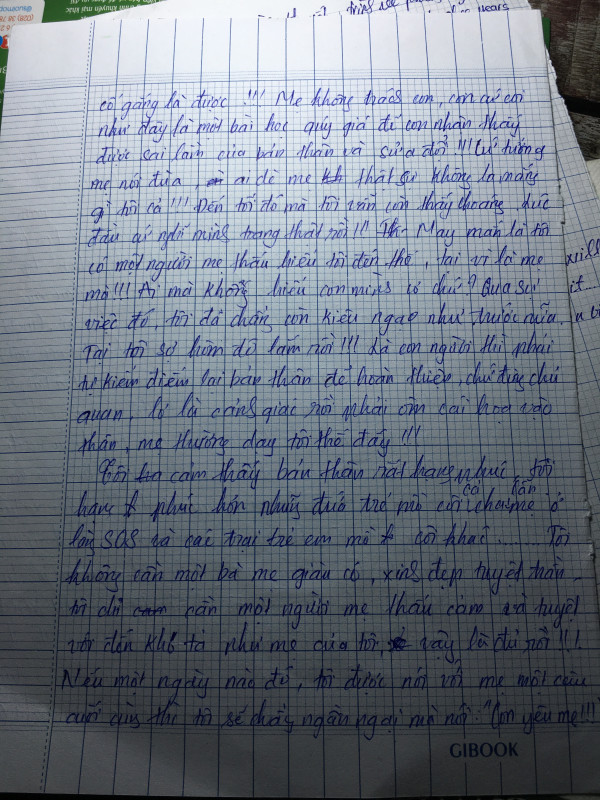 cố gắng là được !!! Mẹ không trách con, con cứ coi
như đây là một bài học quý giá để con nhận thấy
được sai lầm của bản thân và sửa đổi !!! Cứ tưởng
mẹ nói đùa, ai dè mẹ thật sự không la mắng
gì tôi cả !!! Đến tối đó mà tôi vẫn còn thấy choáng, lúc
đầu cứ nghĩ mình trong thật rồi !!! May mắn là tôi
có một người mẹ thấu hiểu tôi đến thế, tại vì là mẹ
mà !!! Ai mà không hiểu con mình cơ chứ? Qua sự
việc đó, tôi đã chẳng còn kiêu ngạo như trước nữa.
Tại tôi sợ lắm rồi !!! Là con người thì phải
tự kiểm điểm lại bản thân để hoàn thiện, chứ đừng chủ
quan, lơ là cảnh giác rồi phải ôm cái hoạ vào
thân, mẹ thường dạy tôi thế đấy !!!
Tôi cảm thấy bản thân rất hạnh phúc, tôi
hạnh phúc hơn những đứa trẻ mồ côi cả cha lẫn mẹ ở
làng SOS và các trại trẻ em mồ côi khác ...... Tôi
không cần một bà mẹ giàu có, xinh đẹp tuyệt trần,
tôi chỉ cần một người mẹ thấu cảm và tuyệt
vời đến khó tả như mẹ của tôi, vậy là đủ rồi !!!
Nếu một ngày nào đó, tôi được nói với mẹ một câu
cuối cùng thì tôi sẽ chẳng ngần ngại mà nói: "Con yêu mẹ !!!
GIBOOK